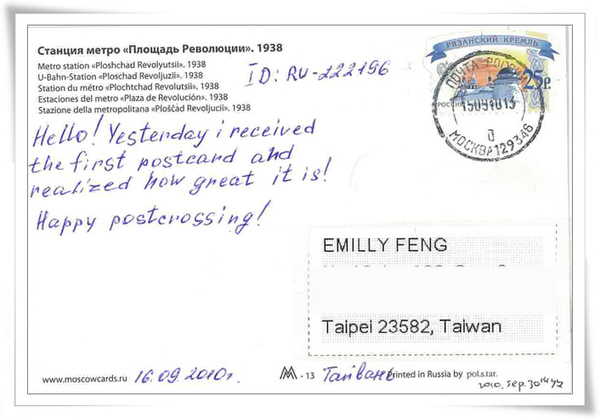 Станция метро «Площадь Революции». 1938
Metro station «Ploshchad Revolyutsii». 1938
U-Bahn-Station «Ploschad Revoljuzii». 1938
Station du métro «Plochtchad Revolutsii». 1938
Estaciones del metro «Plaza de Revolución». 1938
Stazione della metropolitana «Ploščad Revoljucii». 1938
ID: RU-222196
РЯЗАНСКИЙ КРЕМЛЬ
25р.
ПОЧТА РОССИИ
МОСКВА 129346
Hello! Yesterday i received
the first postcard and
realized how great it is!
Happy postcrossing!
EMILLY FENG
Taipei 23582, Taiwan
www.moscowcards.ru
16.09.2010г.
M - 13
Тайвань
Printed in Russia by pol.star.
2010. sep. 30